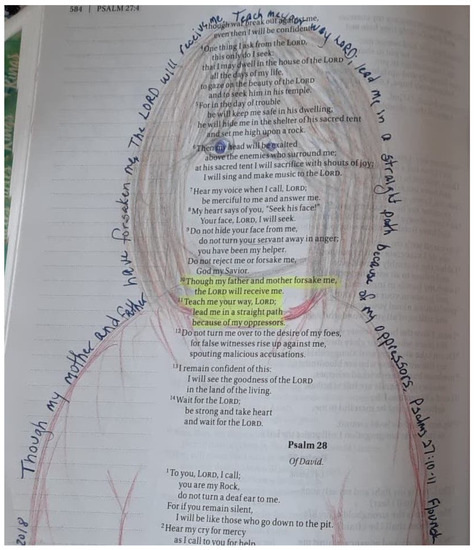 584 | PSALM 27:4
though war break out against me,
even then I will be confident.
4One thing I ask from the LORD,
this only do I seek:
that I may dwell in the house of the LORD
all the days of my life,
to gaze on the beauty of the LORD
and to seek him in his temple.
5For in the day of trouble
he will keep me safe in his dwelling;
he will hide me in the shelter of his sacred tent
and set me high upon a rock.
6Then my head will be exalted
above the enemies who surround me;
at his sacred tent I will sacrifice with shouts of joy;
I will sing and make music to the LORD.
7Hear my voice when I call, LORD;
be merciful to me and answer me.
8My heart says of you, "Seek his face!"
Your face, LORD, I will seek.
9Do not hide your face from me,
do not turn your servant away in anger;
you have been my helper.
Do not reject me or forsake me,
God my Savior.
10Though my father and mother forsake me,
the LORD will receive me.
11Teach me your way, LORD;
lead me in a straight path
because of my oppressors.
12Do not turn me over to the desire of my foes,
for false witnesses rise up against me,
spouting malicious accusations.
13I remain confident of this:
I will see the goodness of the LORD
in the land of the living.
14Wait for the LORD;
be strong and take heart
and wait for the LORD.
Psalm 28
Of David.
1To you, LORD, I call;
you are my Rock,
do not turn a deaf ear to me.
For if you remain silent,
I will be like those who go down to the pit.
2Hear my cry for mercy
as I call to you for help
Though my mother and father have forsaken me, The LORD will receive me. Teach me your way LORD, lead me in a straight path because of my oppressors. Psalms 27:10-11
2018